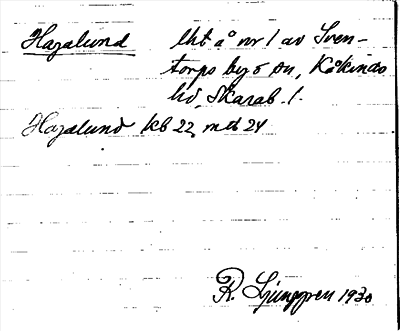 Hagalund lht å nr 1 av Sven-
torps by o sn, Kåkinds
hd, Skarab. l.
Hagalund kb 22 mtl 24
R. Ljunggren 1930